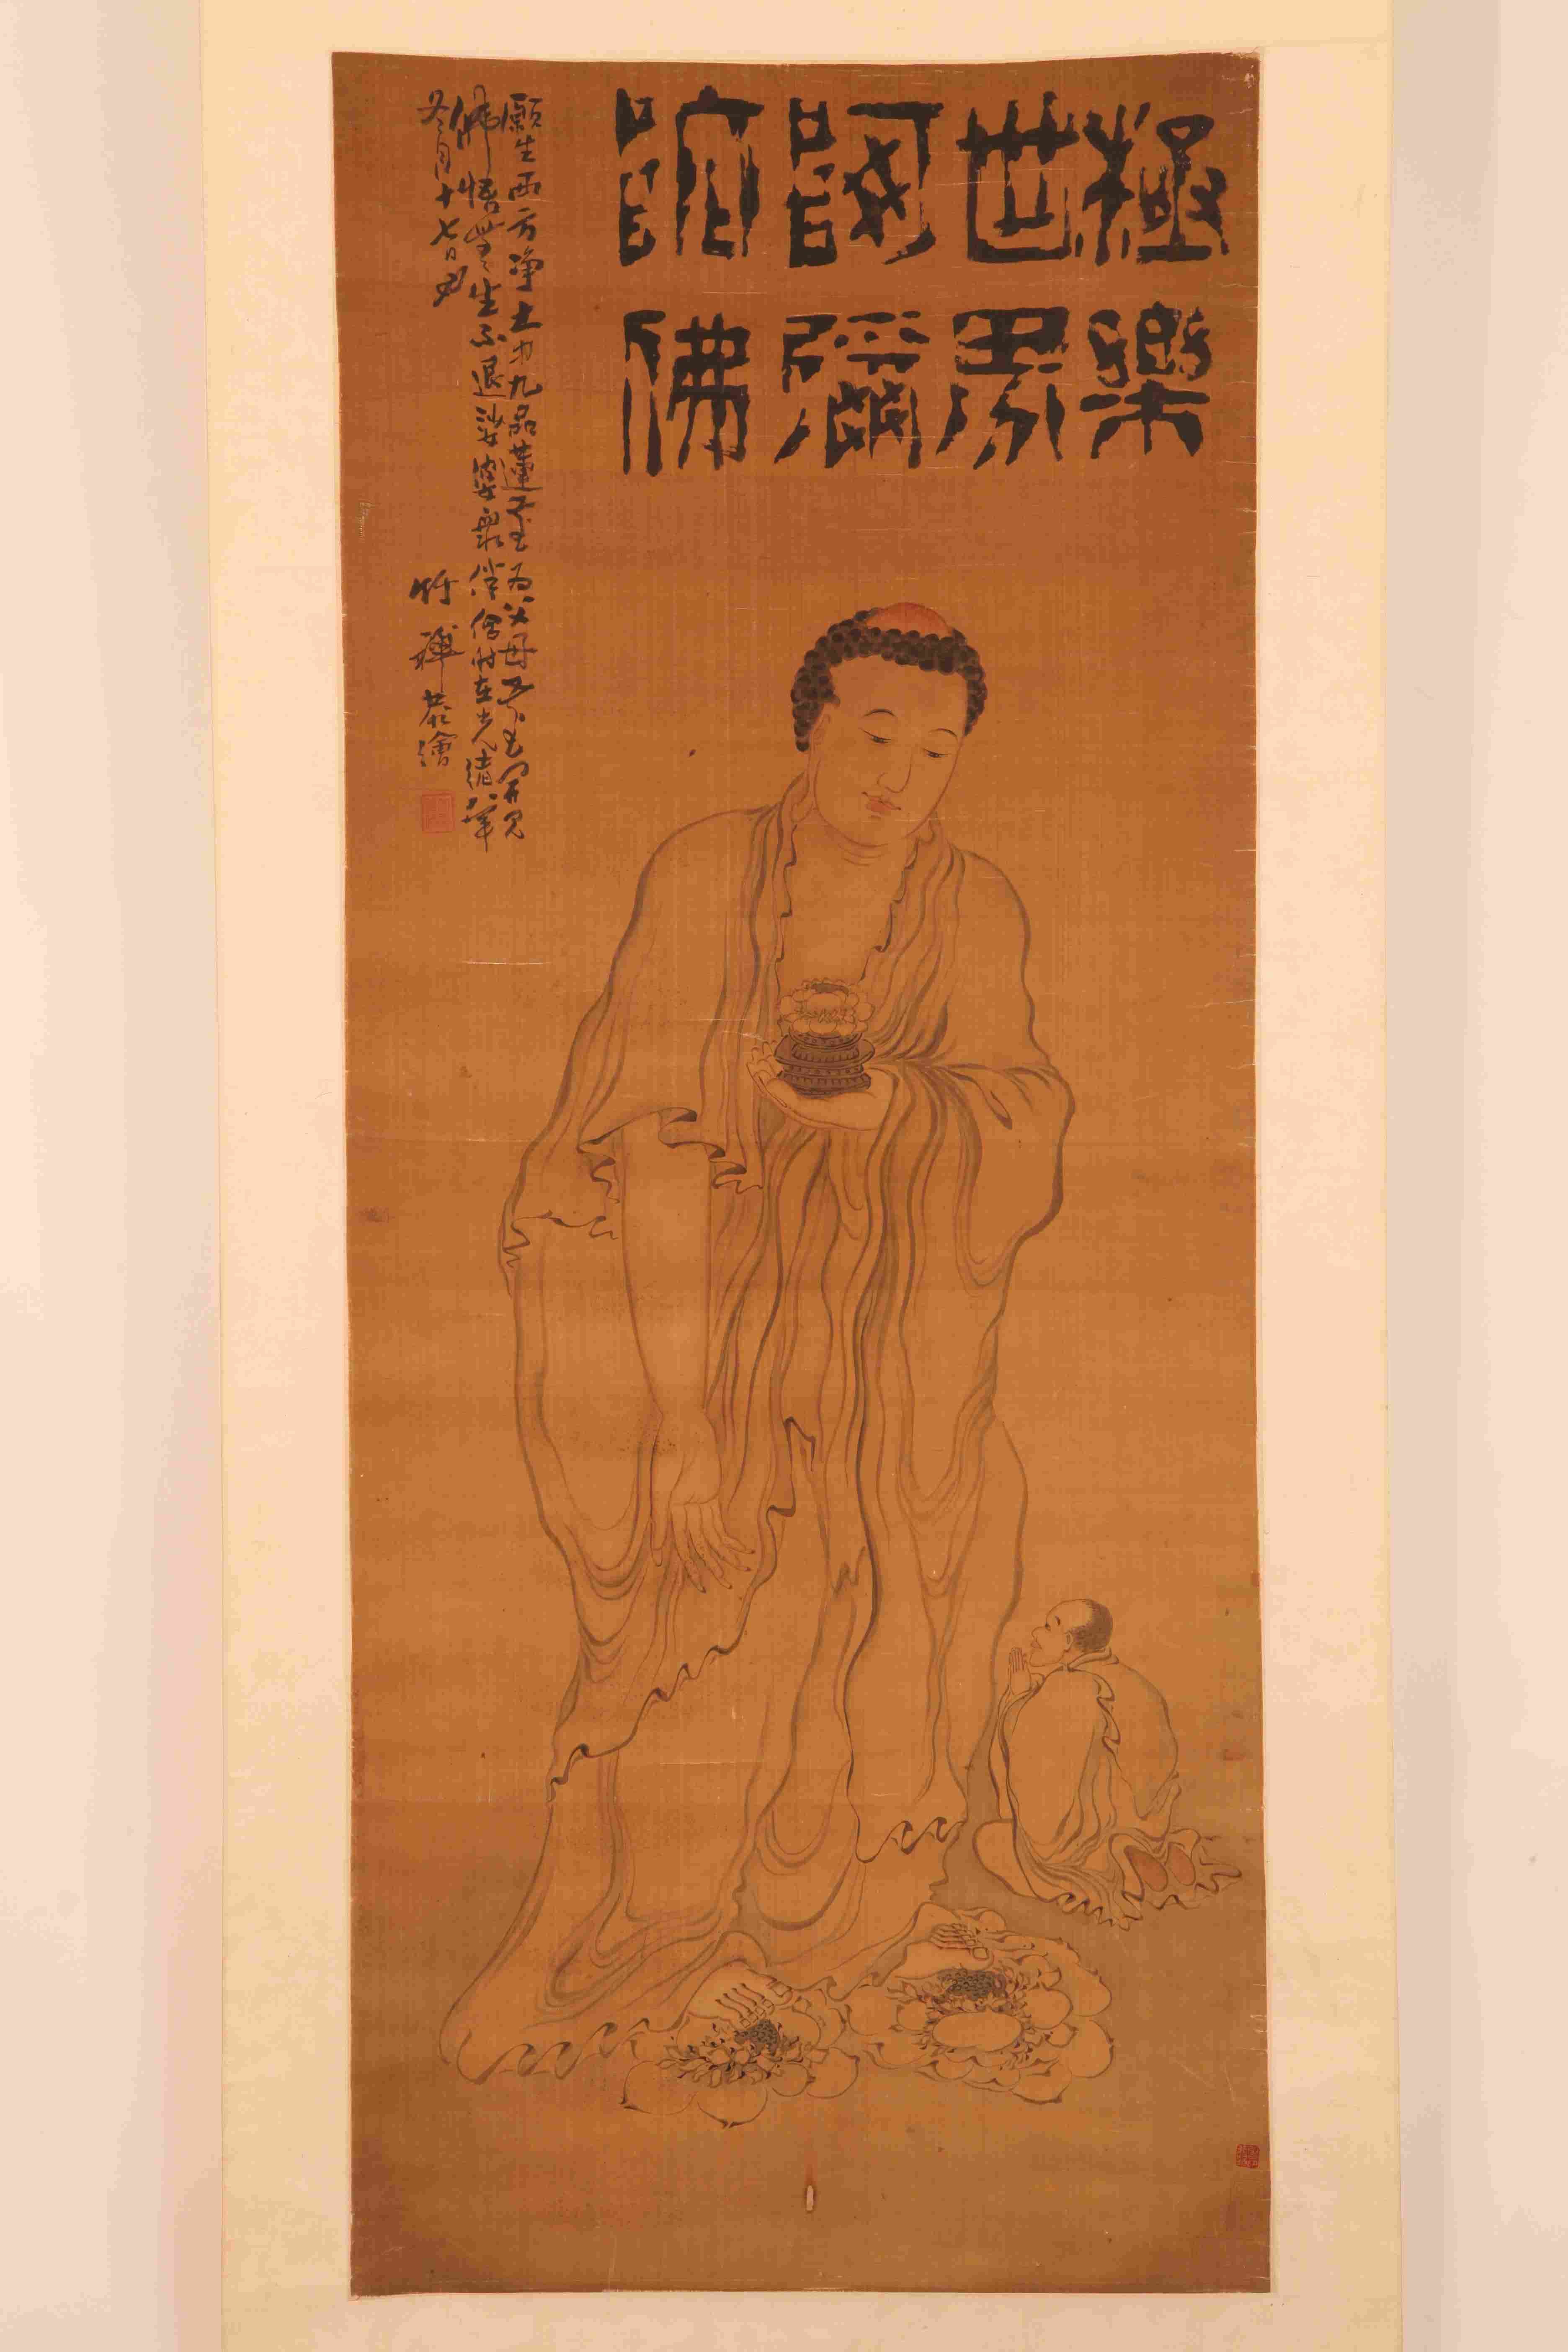 極樂
世界
阿彌
陀佛
願生西方淨土中九品蓮花為父母花開見
佛悟無生不退娑婆眾伴侶時在光緒八年
冬月十七日
竹禪恭繪